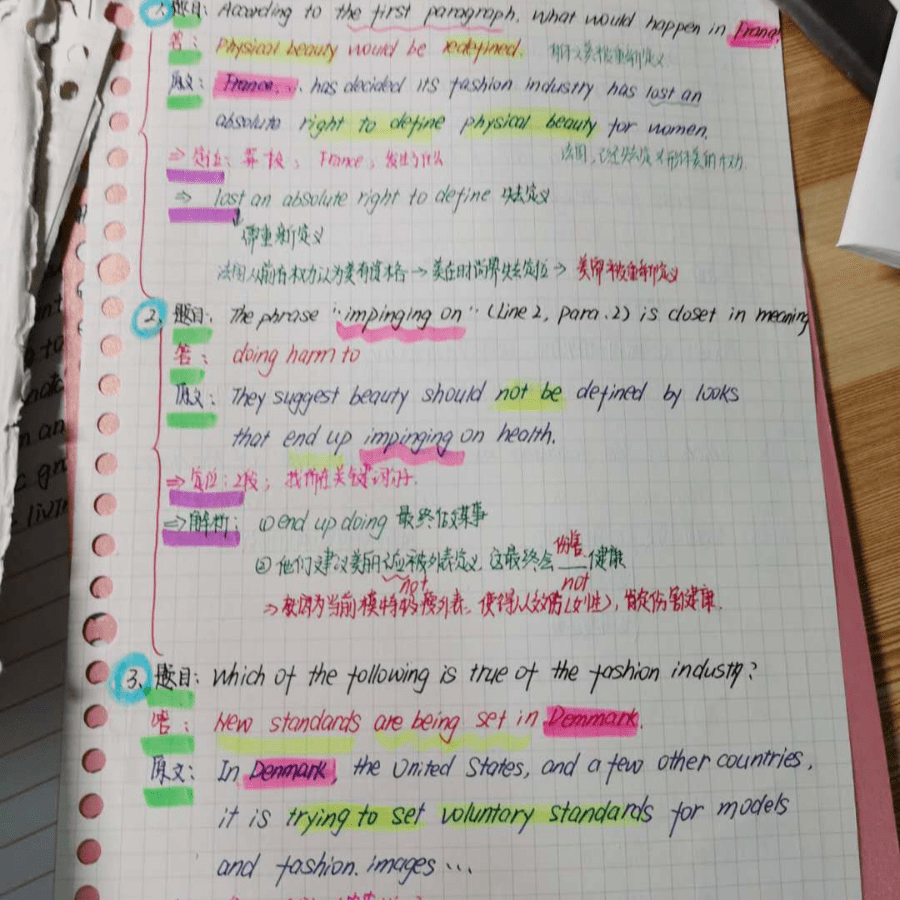 1. 题目: According to the first paragraph, what would happen in France?
答: Physical beauty would be redefined. 形体美被重新定义
原文: France,... has decided its fashion industry has lost an
absolute right to define physical beauty for women.
⇒ 定位: 第一段, France, 发生什么
法国,已经失去定义形体美的权力.
⇒ lost an absolute right to define 失去定义
需重新定义
法国从前有权力认为美有资格 → 美在时尚界失去定位 → 美即被重新定义
2. 题目: The phrase "impinging on" (Line 2, para.2) is closet in meaning
答: doing harm to
原文: They suggest beauty should not be defined by looks
that end up impinging on health.
⇒ 定位: 2段; 找所在关键词句.
⇒ 解析: ① end up doing 最终做某事
② 他们建议美丽不应被外表定义, 这最终会 伤害 健康
not
not
3. 题目: Which of the following is true of the fashion industry?
答: New standards are being set in Demmark.
原文: In Denmark, the United States, and a few other countries,
it is trying to set voluntary standards for models
and fashion. images...